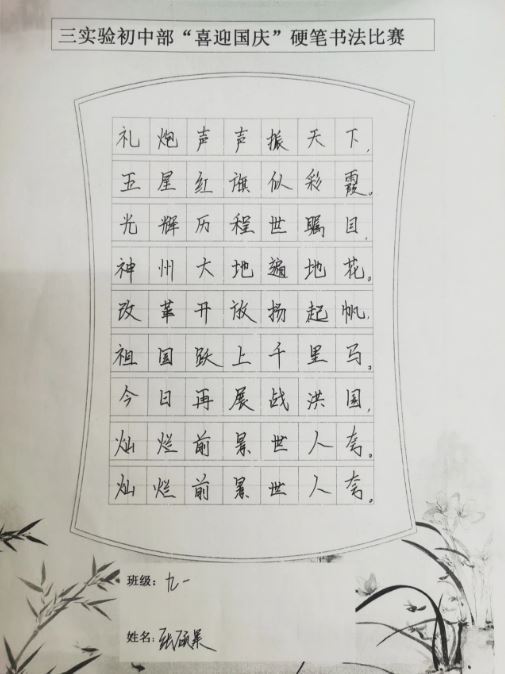 三实验初中部“喜迎国庆”硬笔书法比赛
礼炮声声振天下,
五星红旗似彩霞。
光辉历程世瞩目,
神州大地遍地花。
改革开放扬起帆,
祖国跃上千里马。
今日再展战洪国,
灿烂前景世人夸。
灿烂前景世人夸。
班级：九一
姓名：张